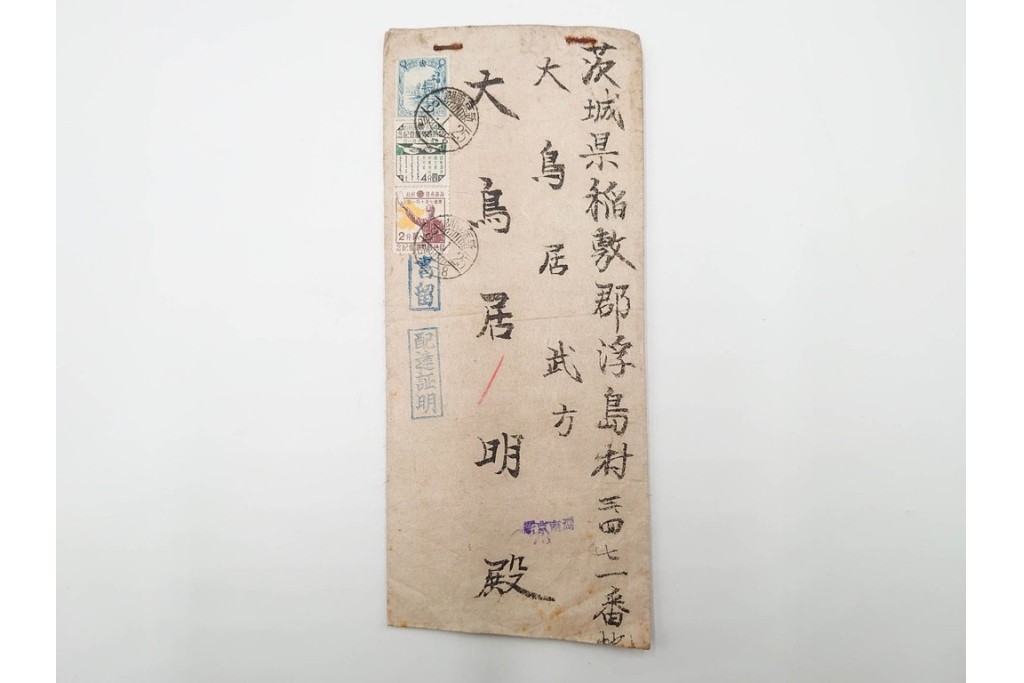 茨城県稲敷郡浮島村三四七一番地
大鳥居武方
大鳥居明殿
書留
配達証明
4分
2分